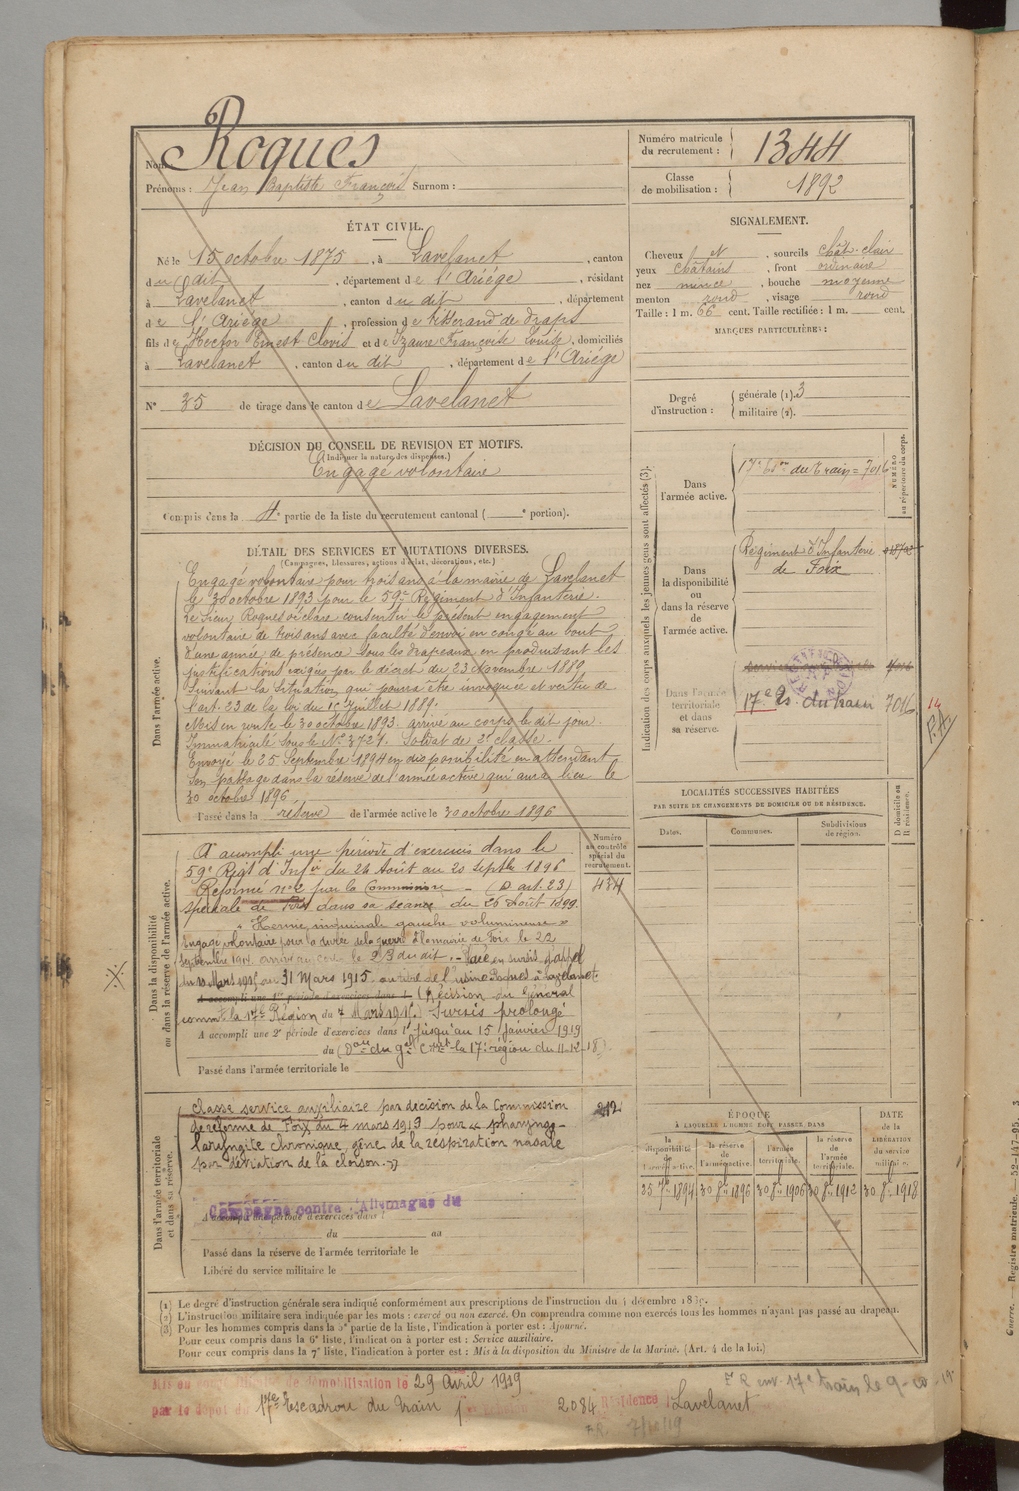 Nom : Roques
Prénoms : Jean Baptiste François Surnom :
Numéro matricule du recrutement : 1344
Classe de mobilisation : 1892
ÉTAT CIVIL.
Né le 15 octobre 1875, à Lavelanet, canton
du dit, département de l'Ariége, résidant
à Lavelanet, canton du dit, département
de l'Ariége, profession de tisserand de draps
fils de Hector Ernest Clovis et de Izaure Françoise Louise, domiciliés
à Lavelanet, canton du dit, département de l'Ariége
N° 35 de tirage dans le canton de Lavelanet
SIGNALEMENT.
Cheveux et, sourcils chât. clair
yeux châtains, front ordinaire
nez mince, bouche moyenne
menton rond, visage rond
Taille : 1 m. 66 cent. Taille rectifiée : 1 m. cent.
MARQUES PARTICULIÈRES :
Degré d'instruction : générale (1). 3
militaire (2).
DÉCISION DU CONSEIL DE REVISION ET MOTIFS.
(Indiquer la nature des dispenses.)
Engagé volontaire
Compris dans la 4e partie de la liste du recrutement cantonal ( e portion).
DÉTAIL DES SERVICES ET MUTATIONS DIVERSES.
(Campagnes, blessures, actions d'éclat, décorations, etc.)
Dans l'armée active.
Engagé volontaire pour trois ans à la mairie de Lavelanet
le 30 octobre 1893 pour le 59e Régiment d'Infanterie.
Le Sieur Roques déclare consentir le présent engagement
volontaire de trois ans avec faculté d'envoi en congé au bout
d'une année de présence sous les drapeaux en produisant les
justifications exigées par le décret du 23 Novembre 1889
suivant la situation qui pourra être invoquée et vertu de
l'art. 23 de la loi du 15 Juillet 1889.
Mis en route le 30 octobre 1893. arrivé au corps le dit jour.
Immatriculé sous le N° 3727. Soldat de 2e classe.
Envoyé le 25 Septembre 1894 en disponibilité en attendant
son passage dans la réserve de l'armée active qui aura lieu le
30 octobre 1896.
Passé dans la réserve de l'armée active le 30 octobre 1896
Indication des corps auxquels les jeunes gens sont affectés (3).
NUMÉRO au répertoire du corps.
Dans l'armée active.
17e Eson du Train = 7016
Dans la disponibilité ou dans la réserve de l'armée active.
Régiment d'Infanterie
de Foix
Dans l'armée territoriale et dans sa réserve.
17e Es. du train 7016
LOCALITÉS SUCCESSIVES HABITÉES
PAR SUITE DE CHANGEMENTS DE DOMICILE OU DE RÉSIDENCE.
Dates. Communes. Subdivisions de région. D domicile ou R résidence.
Numéro au contrôle spécial du recrutement.
Dans la disponibilité ou dans la réserve de l'armée active.
A accompli une période d'exercices dans le
59e Régt d'Infie du 24 Août au 20 Septbre 1896
Réformé n° 2 par la Commission (D. art. 23)
434
spéciale de Foix dans sa séance du 26 Août 1899.
"Hernie inguinale gauche volumineuse"
Engagé volontaire pour la durée de la guerre à la mairie de Foix le 22
septembre 1914. arrivé au corps le 23 du dit. - Placé en sursis d'appel
du 10 Mars 1915 au 31 Mars 1915 au titre de l'usine Roques à Lavelanet
A accompli une 1re période d'exercices dans l (Décision du Général
commt la 17e Région du 7 Mars 1915). Sursis prolongé
A accompli une 2e période d'exercices dans l jusqu'au 15 Janvier 1919
du (Don du Gal Cmt la 17e région du 4-12-18).
Passé dans l'armée territoriale le
Dans l'armée territoriale et dans sa réserve.
Classé service auxiliaire par décision de la Commission
212
de réforme de Foix du 4 mars 1919 pour « pharyngo-
laryngite chronique gêne de la respiration nasale
par déviation de la cloison. »
Campagne contre l'Allemagne du
A accompli une période d'exercices dans l
du au
Passé dans la réserve de l'armée territoriale le
Libéré du service militaire le
ÉPOQUE
À LAQUELLE L'HOMME DOIT PASSER DANS
la disponibilité de l'armée active. la réserve de l'armée active. l'armée territoriale. la réserve de l'armée territoriale. DATE de la LIBÉRATION du service militaire.
25 7bre 1894 30 8bre 1896 30 8bre 1906 30 8bre 1912 30 8bre 1918
(1) Le degré d'instruction générale sera indiqué conformément aux prescriptions de l'instruction du 4 décembre 1889.
(2) L'instruction militaire sera indiquée par les mots : exercé ou non exercé. On comprendra comme non exercés tous les hommes n'ayant pas passé au drapeau.
(3) Pour les hommes compris dans la 5e partie de la liste, l'indication à porter est : Ajourné.
Pour ceux compris dans la 6e liste, l'indication à porter est : Service auxiliaire.
Pour ceux compris dans la 7e liste, l'indication à porter est : Mis à la disposition du Ministre de la Marine. (Art. 4 de la loi.)
Mis en congé illimité de démobilisation le 29 avril 1919
par le dépôt du 17e Escadron du Train 2084 Résidence Lavelanet
7/10/19